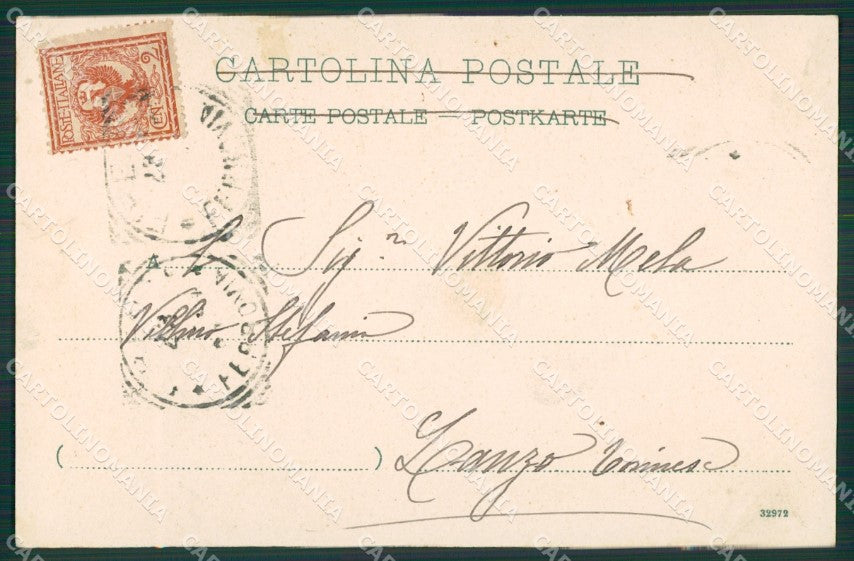 CARTOLINA POSTALE
CARTE POSTALE — POSTKARTE
POSTE·ITALIANE
CENT. 2
A
Sig.re Vittorio Mela
Stefani
(                    )
Lanzo Torinese
32972
FERROVIA
CARTOLINOMANIA